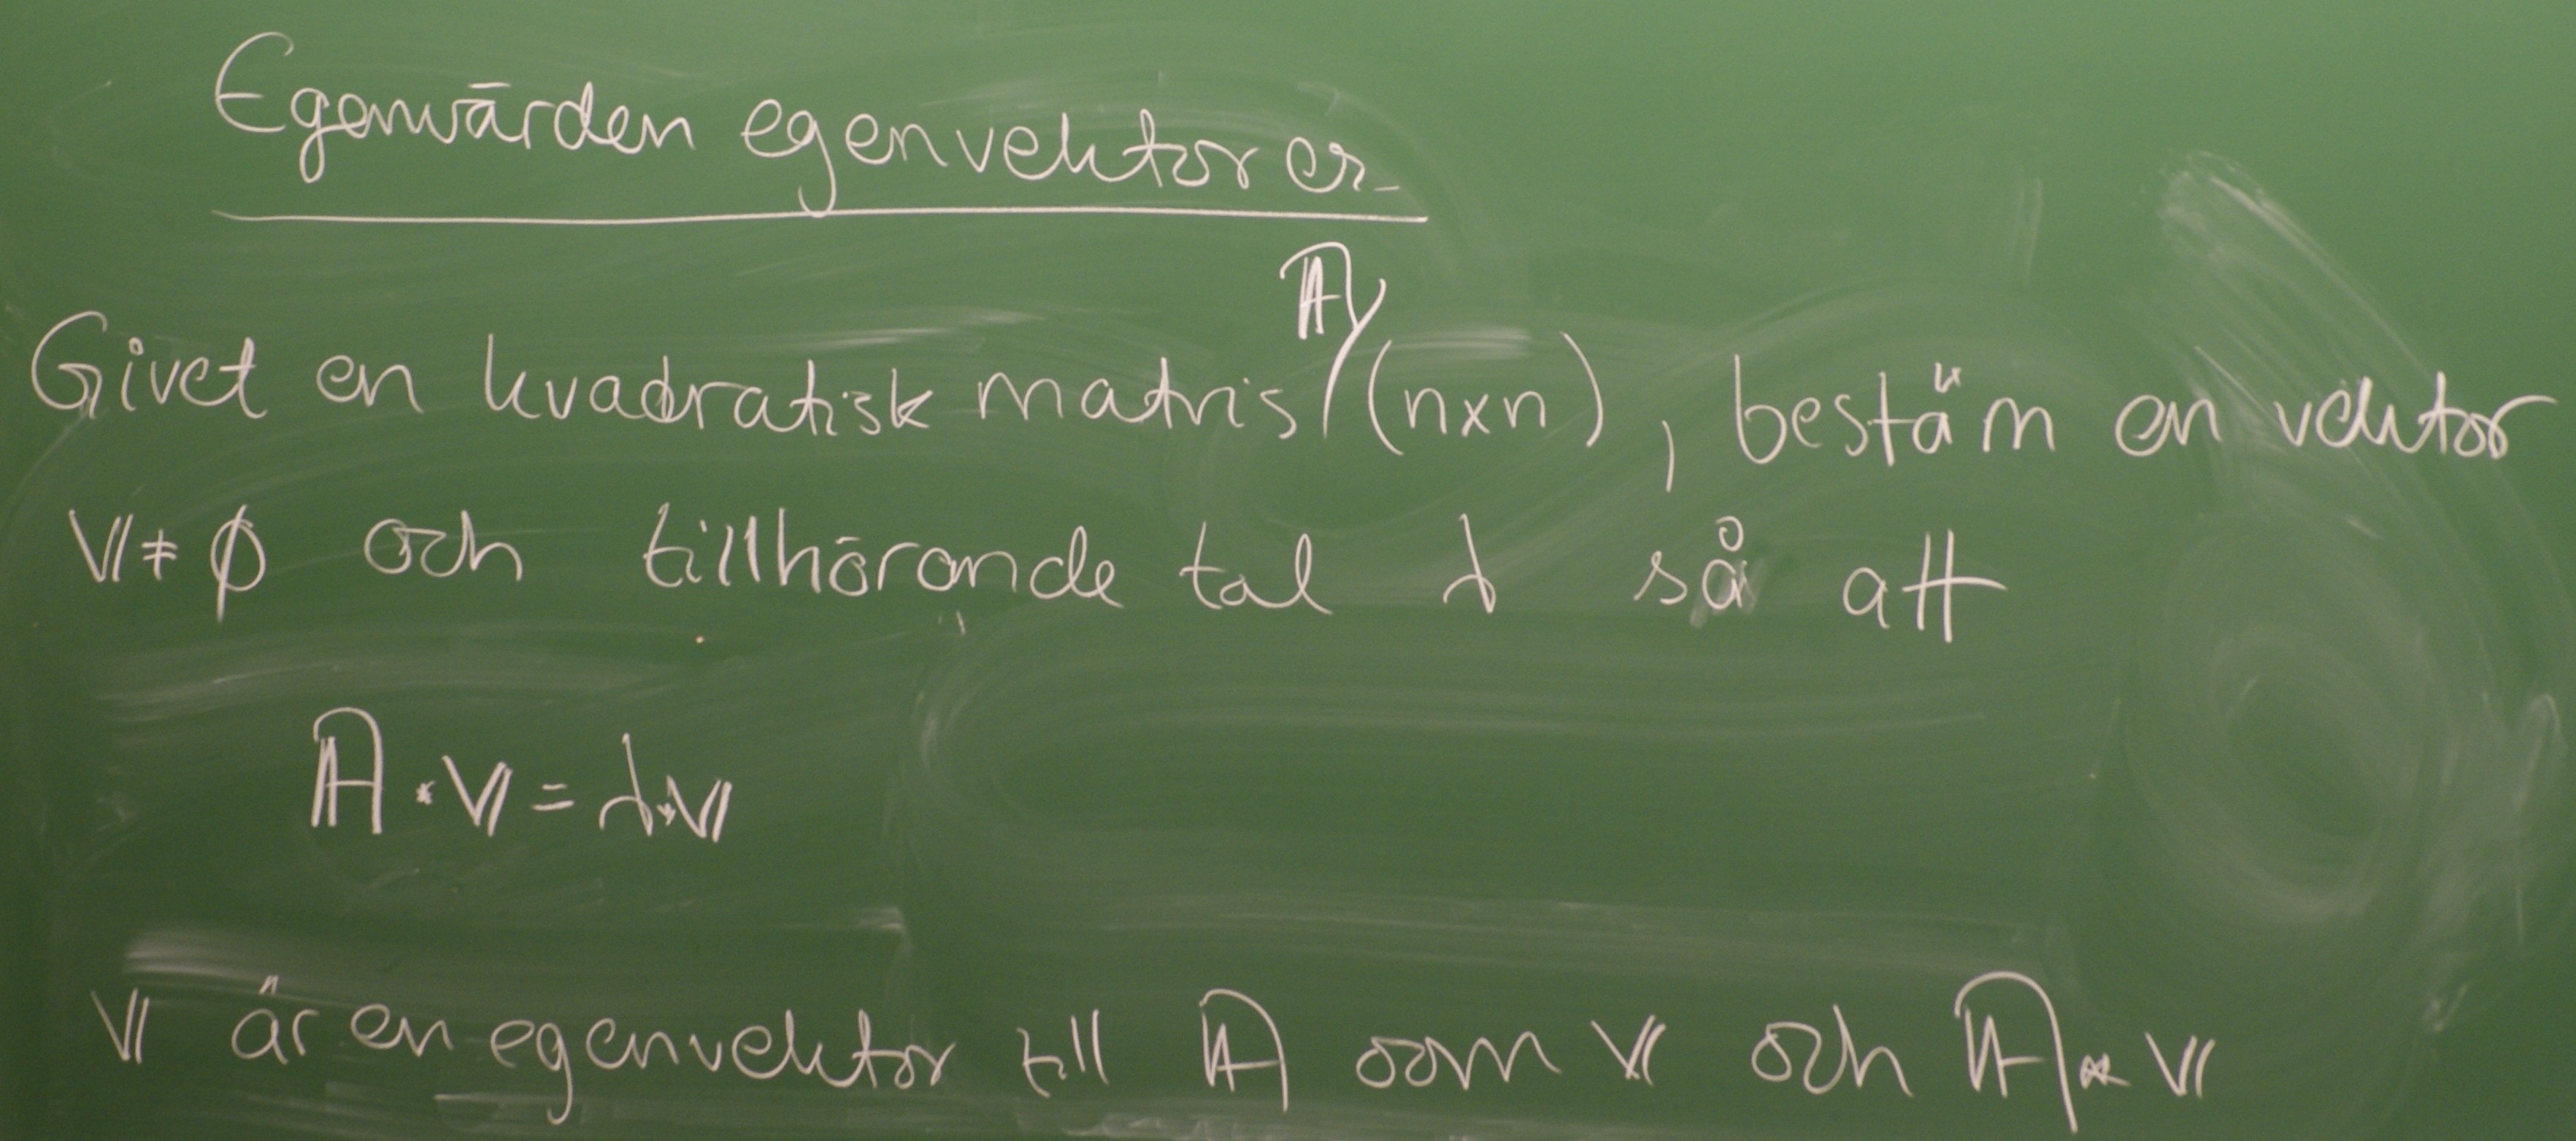 Egenvärden egenvektorer
Givet en kvadratisk matris 𝔸 (n×n), bestäm en vektor
𝕍 ≠ ∅ och tillhörande tal λ så att
𝔸 · 𝕍 = λ · 𝕍
𝕍 är en egenvektor till 𝔸 om 𝕍 och 𝔸 · 𝕍